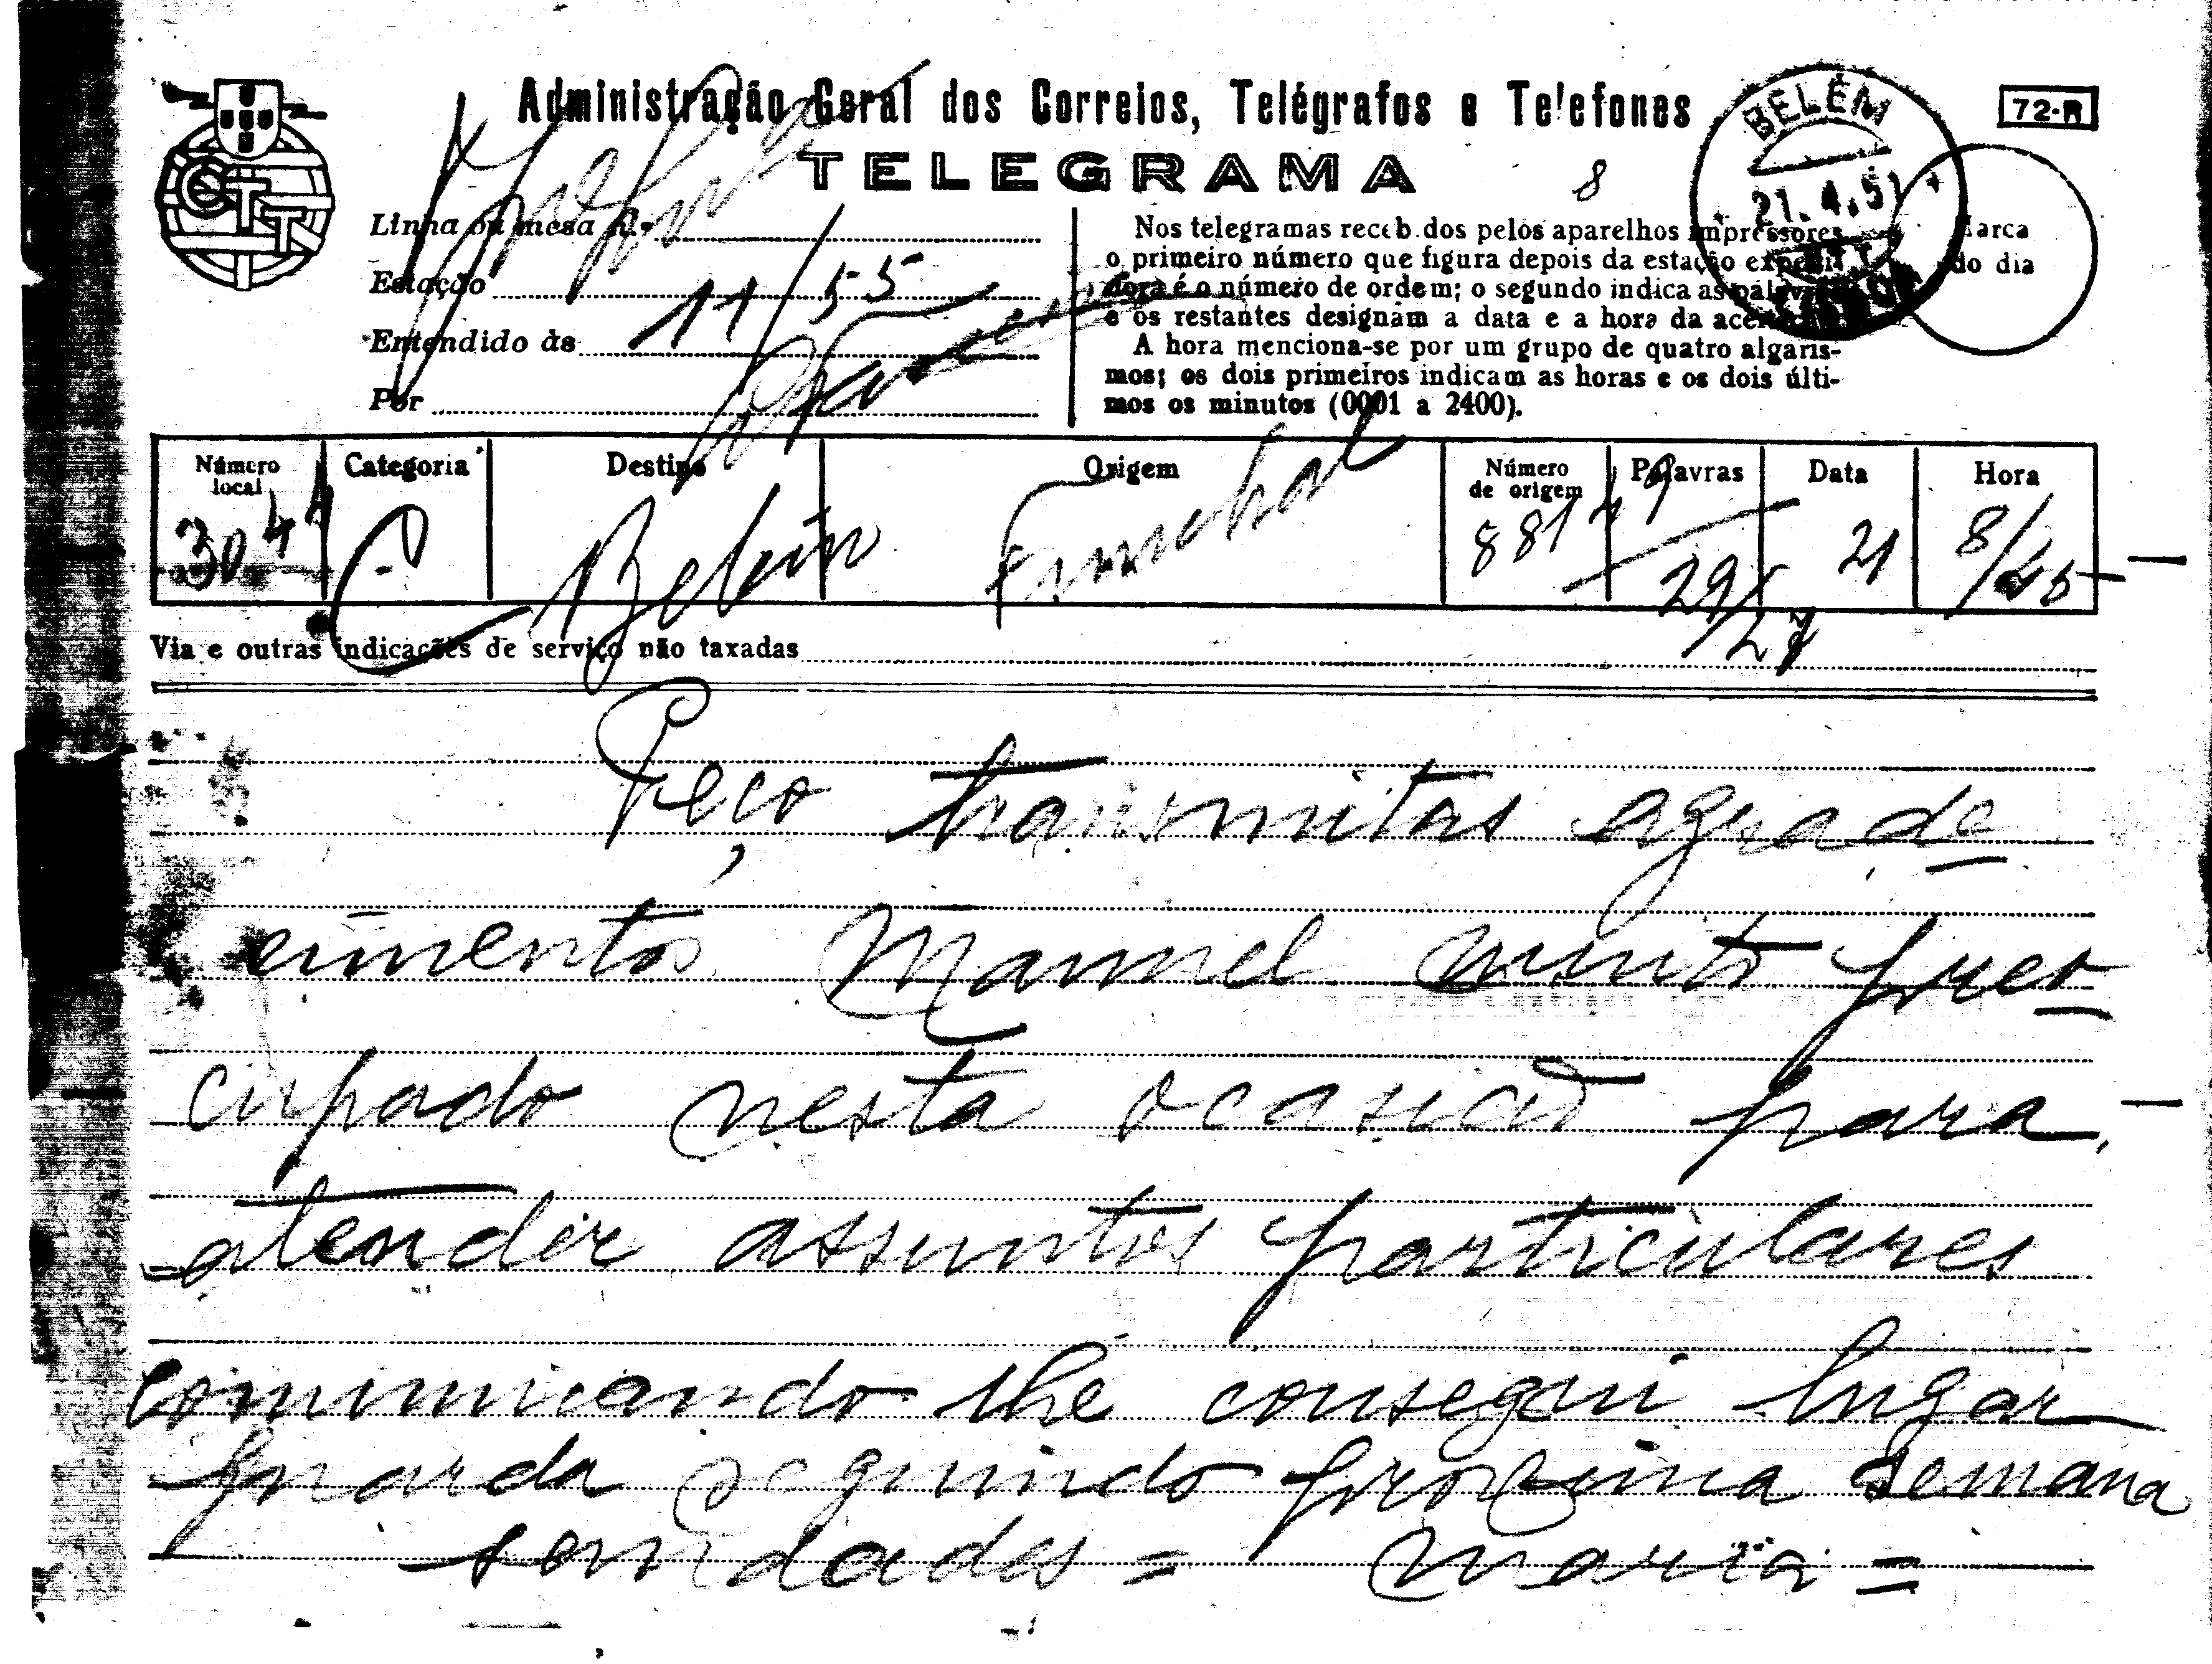 Administração Geral dos Correios, Telégrafos e Telefones
72-R
TELEGRAMA
8
BELÉM
21.4.51
CTT
Linha ou mesa n.º
Estação
Entendido às 11/55
Por
Nos telegramas recebidos pelos aparelhos impressores
o primeiro número que figura depois da estação expedi-
dora é o número de ordem; o segundo indica as palavras
e os restantes designam a data e a hora da aceitação.
A hora menciona-se por um grupo de quatro algaris-
mos; os dois primeiros indicam as horas e os dois últi-
mos os minutos (0001 a 2400).
Marca
do dia
Número local Categoria Destino Origem Número de origem Palavras Data Hora
3044 Belém Funchal 881 29/27 21 8/45
Via e outras indicações de serviço não taxadas
Peço transmitas agrade
cimentos Manuel muito preo
cupado nesta ocasião para
atender assuntos particulares
comunicando lhe consegui lugar
guarda seguindo proxima semana
saudades = Maria =